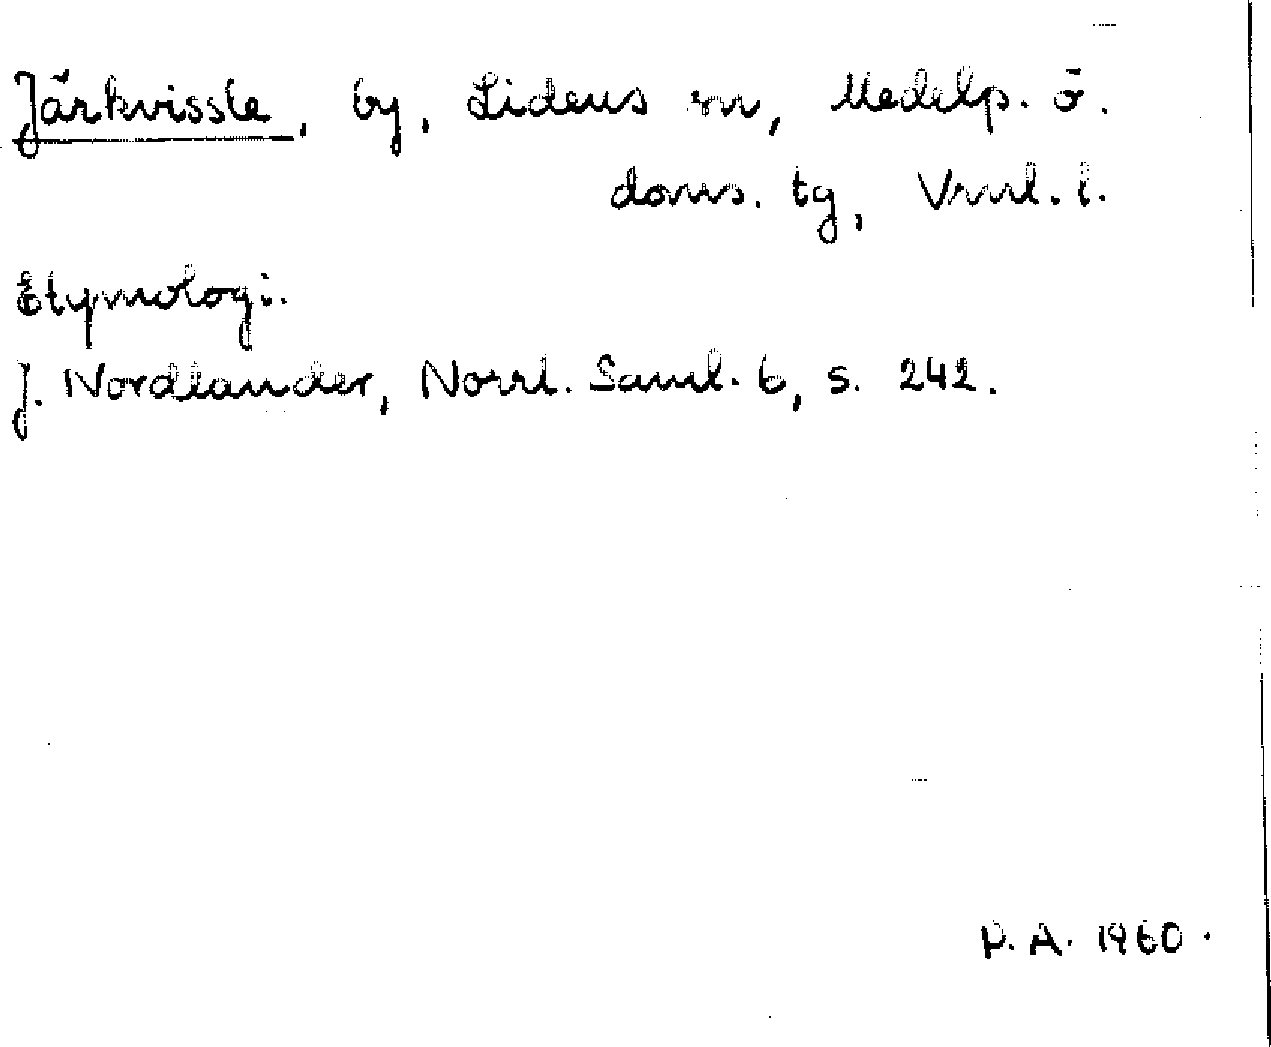 Järkvissle, by, Lidens sn, Medelp. ö.
doms. tg, Vrnl. l.
Etymologi.
J. Nordlander, Norrl. Saml. 6, s. 242.
P.A. 1960.